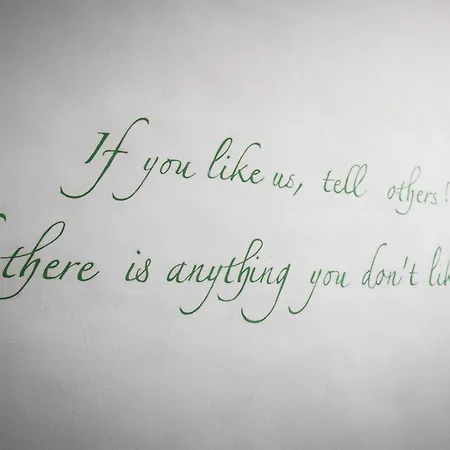 If you like us, tell others!
there is anything you don't lik